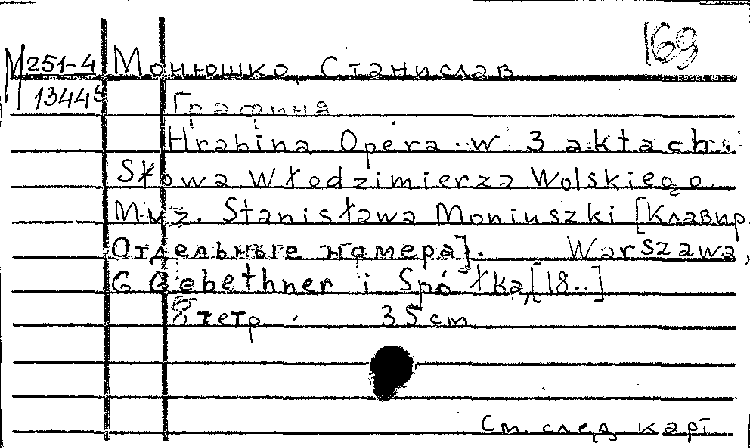 169
М251-4 Монюшко, Станислав
13445
Графиня
Hrabina Opera w 3 aktach.
Słowa Włodzimierza Wolskiego.
Muz. Stanisława Moniuszki [Клавир.
Отдельные номера]. Warszawa,
G Gebethner i Spółka, [18..]
8 тетр. 35 cm
См. след. карт